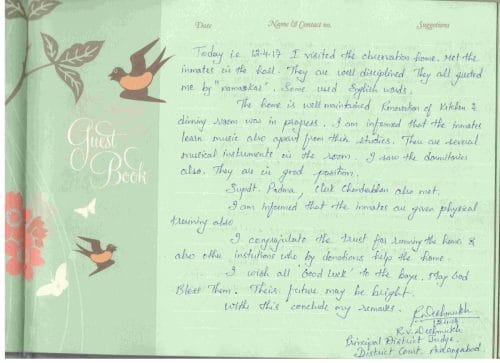 Date Name & Contact no. Suggetions
Guest
Book
Today i.e. 12-4-17 I visited the observation home. Met the
inmates in the hall. They are well disciplined They all greeted
me by "namaskar". Some used English words.
The home is well maintained Renovation of Kitchen &
dinning room was in progress. I am informed that the inmates
learn music also apart from their studies. There are several
musical instruments in the room. I saw the dormitories
also. They are in good position.
Supdt. Padma, Clerk also met.
I am informed that the inmates are given physical
training also
I congrajulate the trust for running the home &
also other instutions who by donations help the home.
I wish all 'Good luck' to the boys. May God
Bless Them. Their future may be bright.
With this conclude my remarks.
R. V. Deshmukh
Principal District Judge,
District Court,